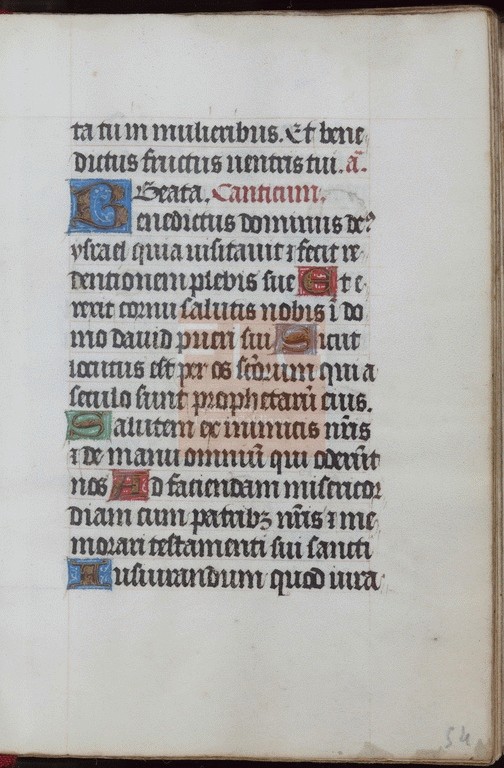 ta tu in mulieribus. Et bene
dictus fructus uentris tui. a̅.
Beata. Canticum.
Benedictus dominus de9
ysrael quia uisitauit ⁊ fecit re
dentionem plebis sue Et e
rexit cornu salutis nobis i̅ do
mo dauid pueri sui Sicut
locutus est per os sc̅orum qui a
seculo sunt prophetaru̅ eius.
Salutem ex inimicis nr̅is
⁊ de manu omniu̅ qui oderu̅t
nos Ad faciendam misericor
diam cum patribꝫ nr̅is ⁊ me
morari testamenti sui sancti
Iusiurandum quod iura
54